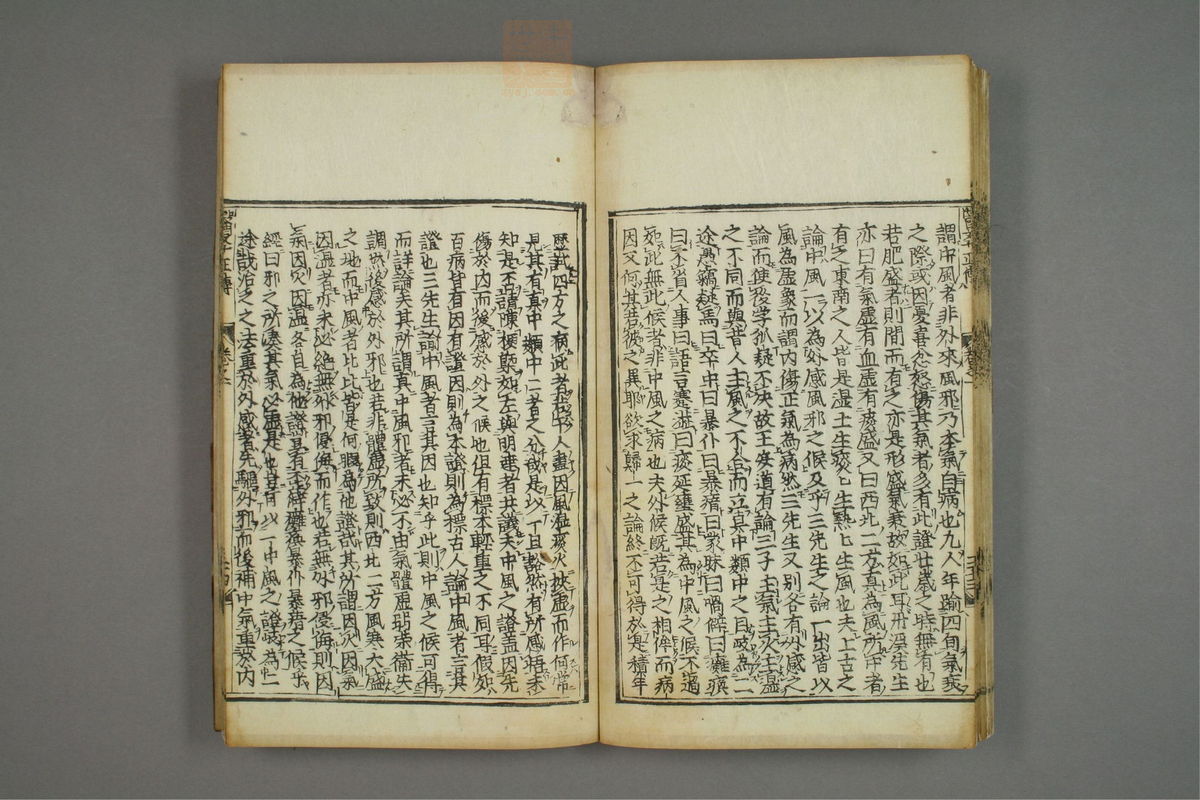 謂中風者非外來風邪乃本氣自病也凡人年踰四旬氣衰
之際或因憂喜忿怒傷其氣者多有此證壯歲之時無有也
若肥盛者則間而有之亦是形盛氣衰故如此耳丹溪先生
亦曰有氣虛有血虛有痰盛又曰西北二方真為風所中者
有之東南之人皆是湿土生痰〻生熱〻生風也夫上古之
論中風一以為外感風邪之候及乎三先生之論一出皆以
風為虛象而謂内傷正氣為病然三先生又別各有外感之
論而使後学狐疑不决故王安道有論三子主氣主火主湿
之不同而與昔人主風之不合而立真中類中之目歧為二
途愚竊疑焉曰卒中曰暴仆曰暴瘖曰蒙昧曰喎僻曰癱瘓
曰不省人事曰語言蹇澁曰痰延壅盛其為中風之候不過
如此無此候者非中風之病也夫外候旣若是之相侔而病
因又何其若彼之異耶欲求歸一之論終不可得於是積年
歷試四方之病此者若干人盡因風湿痰火挾虛而作何常
見其有真中類中二者之分哉是以一旦豁然有所感悟未
知是不請陳梗槩如左與明達者共議夫中風之證盖因先
傷於内而後感於外之候也但有標本輕重之不同耳假如
百病皆有因有證因則為本證則為標古人論中風者言其
證也三先生論中風者言其因也知乎此則中風之候可得
而詳論夫其所謂真中風邪者未必不由氣體虛弱榮衛失
調然後感於外邪也若非體虛所致則西北二方風寒大盛
之地而中風者比比皆是何暇為他證哉其所謂因火因氣
因湿者亦未必絶無外邪侵侮而作也若無外邪侵侮則因
氣因火因湿各自為他證豈有歪僻癱瘓暴仆暴瘖之候乎
經曰邪之所湊其氣必虛是也豈可以一中風之證歧為二
途哉治之之法重於外感者先驅外邪而後補中氣重於内